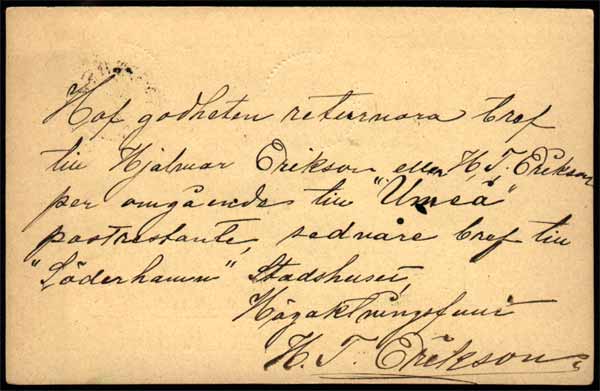 Haf godheten returnera bref
till Hjalmar Erikson eller H. T. Erikson
per omgående till "Umeå"
postrestante, sednare bref till
"Söderhamn" Stadshuset,
Högaktningsfullt
H. T. Erikson